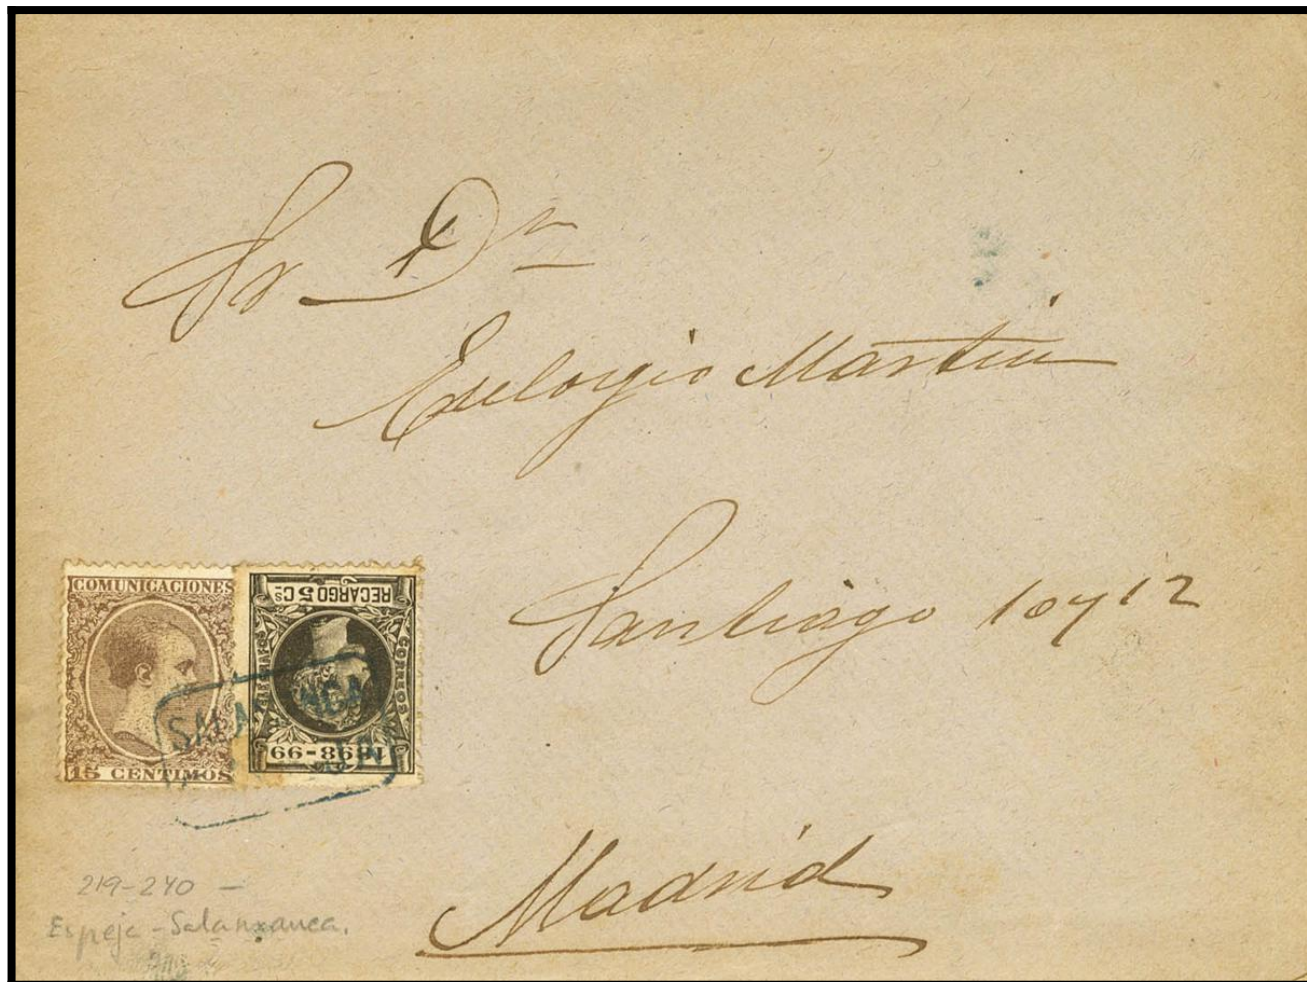 Sr Dn
Eulogio Martin
Santiago 10 y 12
Madrid
COMUNICACIONES
15 CENTIMOS
RECARGO 5 CS
CORREOS
1898-99
SALAMANCA
219-240 -
Espeja - Salamanca.